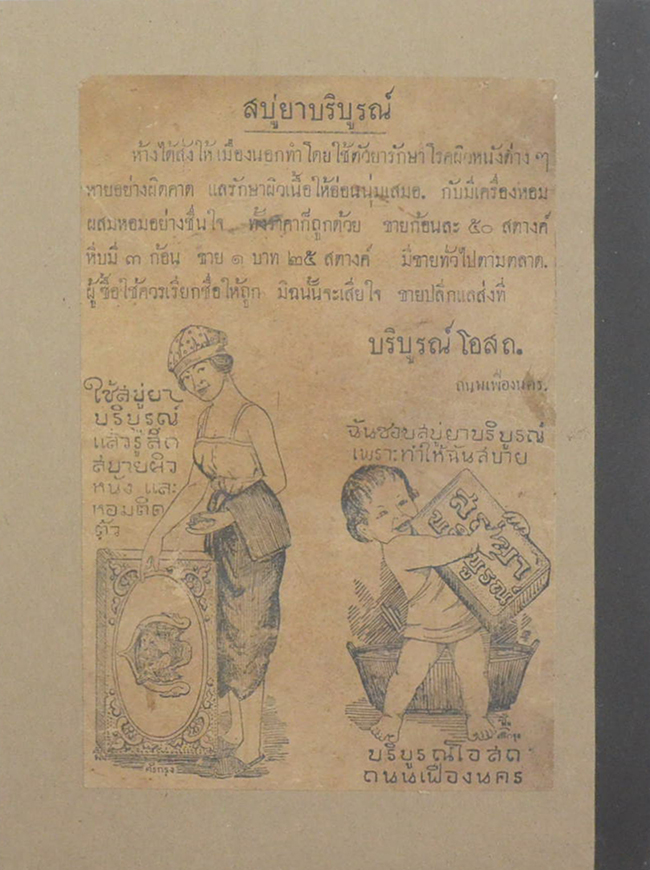 สบู่ยาบริบูรณ์
ห้างได้สั่งให้เมืองนอกทำโดยใช้ตัวยารักษาโรคผิวหนังต่าง ๆ
หายอย่างผิดคาด แลรักษาผิวเนื้อให้อ่อนนุ่มเสมอ. กับมีเครื่องหอม
ผสมหอมอย่างชื่นใจ ทั้งราคาก็ถูกด้วย ขายก้อนละ ๕๐ สตางค์
หีบมี ๓ ก้อน ขาย ๑ บาท ๒๕ สตางค์ มีขายทั่วไปตามตลาด.
ผู้ซื้อใช้ควรเรียกชื่อให้ถูก มิฉนั้นจะเสียใจ ขายปลีกแลส่งที่
บริบูรณ์โอสถ.
ถนนเฟื่องนคร.
ใช้สบู่ยา
บริบูรณ์
แล้วรู้สึก
สบายผิว
หนัง และ
หอมติด
ตัว
ฉันชอบสบู่ยาบริบูรณ์
เพราะทำให้ฉันสบาย
สบู่ยา
บริบูรณ์
บริบูรณ์โอสถ
ถนนเฟื่องนคร